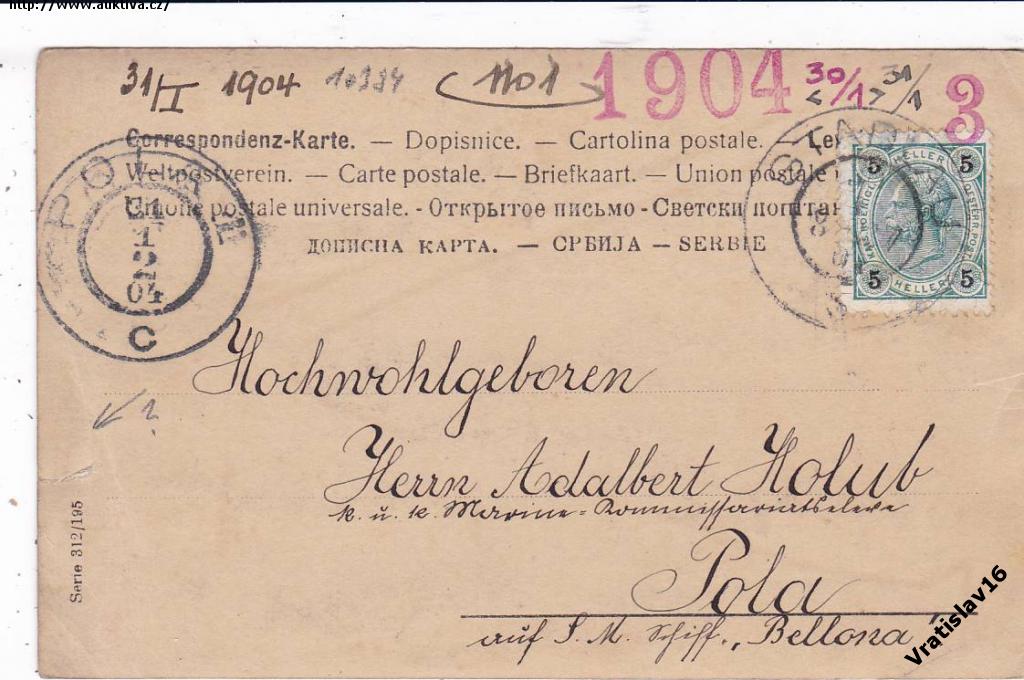 http://www.auktiva.cz/
31/I 1904 10384 1101 1904 30/1 31/1 3
Correspondenz-Karte. — Dopisnice. — Cartolina postale. —
Weltpostverein. — Carte postale. — Briefkaart. — Union postale
Unione postale universale. - Открытое письмо - Светски поштан
ДОПИСНА КАРТА. — СРБИЈА — SERBIE
POLA
1 2
04
C
5 HELLER 5
5 HELLER 5
Hochwohlgeboren
Herrn Adalbert Holub
k. u. k. Marine-Kommissariatseleve
Pola
auf S. M. Schiff „Bellona"
?
Serie 312/195
Vratislav16